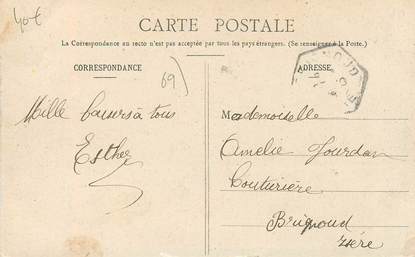 40€
CARTE POSTALE
La Correspondance au recto n'est pas acceptée par tous les pays étrangers. (Se renseigner à la Poste.)
CORRESPONDANCE
ADRESSE
69
Mille baisers à tous
Esther
Mademoiselle
Amelie Jourdan
Couturière
Brignoud
Isère